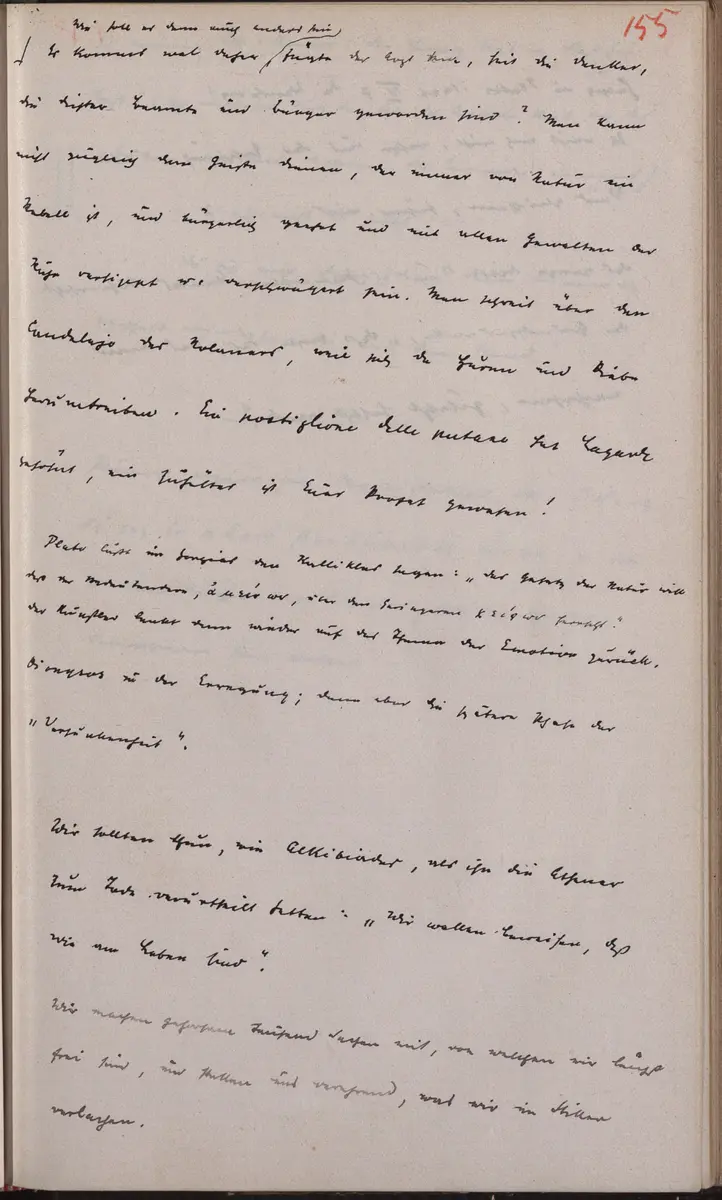 155
Wie soll es denn auch anders sein,
Es kommt wol daher sagte der Arzt hier, seit die Denker,
die Dichter Beamte und Bürger geworden sind? Man kann
nicht zugleich dem Geiste dienen, der immer von Natur ein
Rebell ist, und bürgerlich geehrt und mit allen Gewalten der
Ruhe versippt u. verschwägert sein. Man schreit über den
Candelajo des Nolaners, weil sich da Huren und Diebe
herumtreiben. Ein postiglione delle putane hat Lagarde
gehöhnt, ein Zuhälter ist Euer Profet gewesen!
Plato läßt im Gorgias den Kallikles sagen: „das Gesetz der Natur will
daß der Bedeutendere, ἀμείνων, über den Geringeren χείρων herrscht."
der Künstler lenkt dann wieder auf das Thema der Emotion zurück.
Dionysos in der Erregung; dann aber die spätere Phase der
„Versunkenheit".
Wir sollten thun, wie Alkibiades, als ihn die Athener
zum Tode verurtheilt hatten: „Wir wollen beweisen, daß
wir am Leben sind".
Wir machen gehorsam tausend Sachen mit, von welchen wir längst
frei sind, und stellen uns verehrend, was wir im Stillen
verlachen.